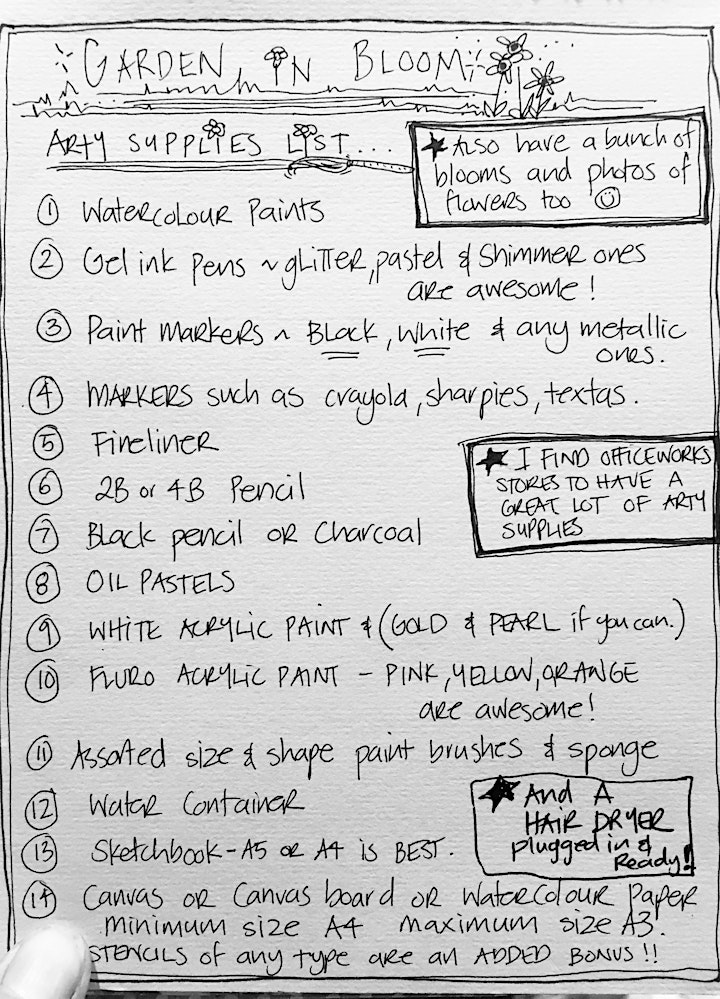 GARDEN IN BLOOM
ARTY SUPPLIES LIST...
★ Also have a bunch of
blooms and photos of
flowers too ☺
① Watercolour Paints
② Gel ink pens ~ glitter, pastel & shimmer ones
are awesome!
③ Paint markers ~ Black, white & any metallic
ones.
④ MARKERS such as crayola, sharpies, textas.
⑤ Fineliner
⑥ 2B or 4B Pencil
★ I FIND OFFICEWORKS
STORES TO HAVE A
GREAT LOT OF ARTY
SUPPLIES
⑦ Black pencil OR Charcoal
⑧ OIL PASTELS
⑨ WHITE ACRYLIC PAINT & (GOLD & PEARL if you can.)
⑩ FLURO ACRYLIC PAINT - PINK, YELLOW, ORANGE
are awesome!
⑪ Assorted size & shape paint brushes & sponge
⑫ Water Container
★ And A
HAIR DRYER
plugged in &
Ready!
⑬ Sketchbook - A5 OR A4 is BEST.
⑭ Canvas OR Canvas board OR Watercolour Paper
minimum size A4 maximum size A3.
STENCILS of any type are an ADDED BONUS!!